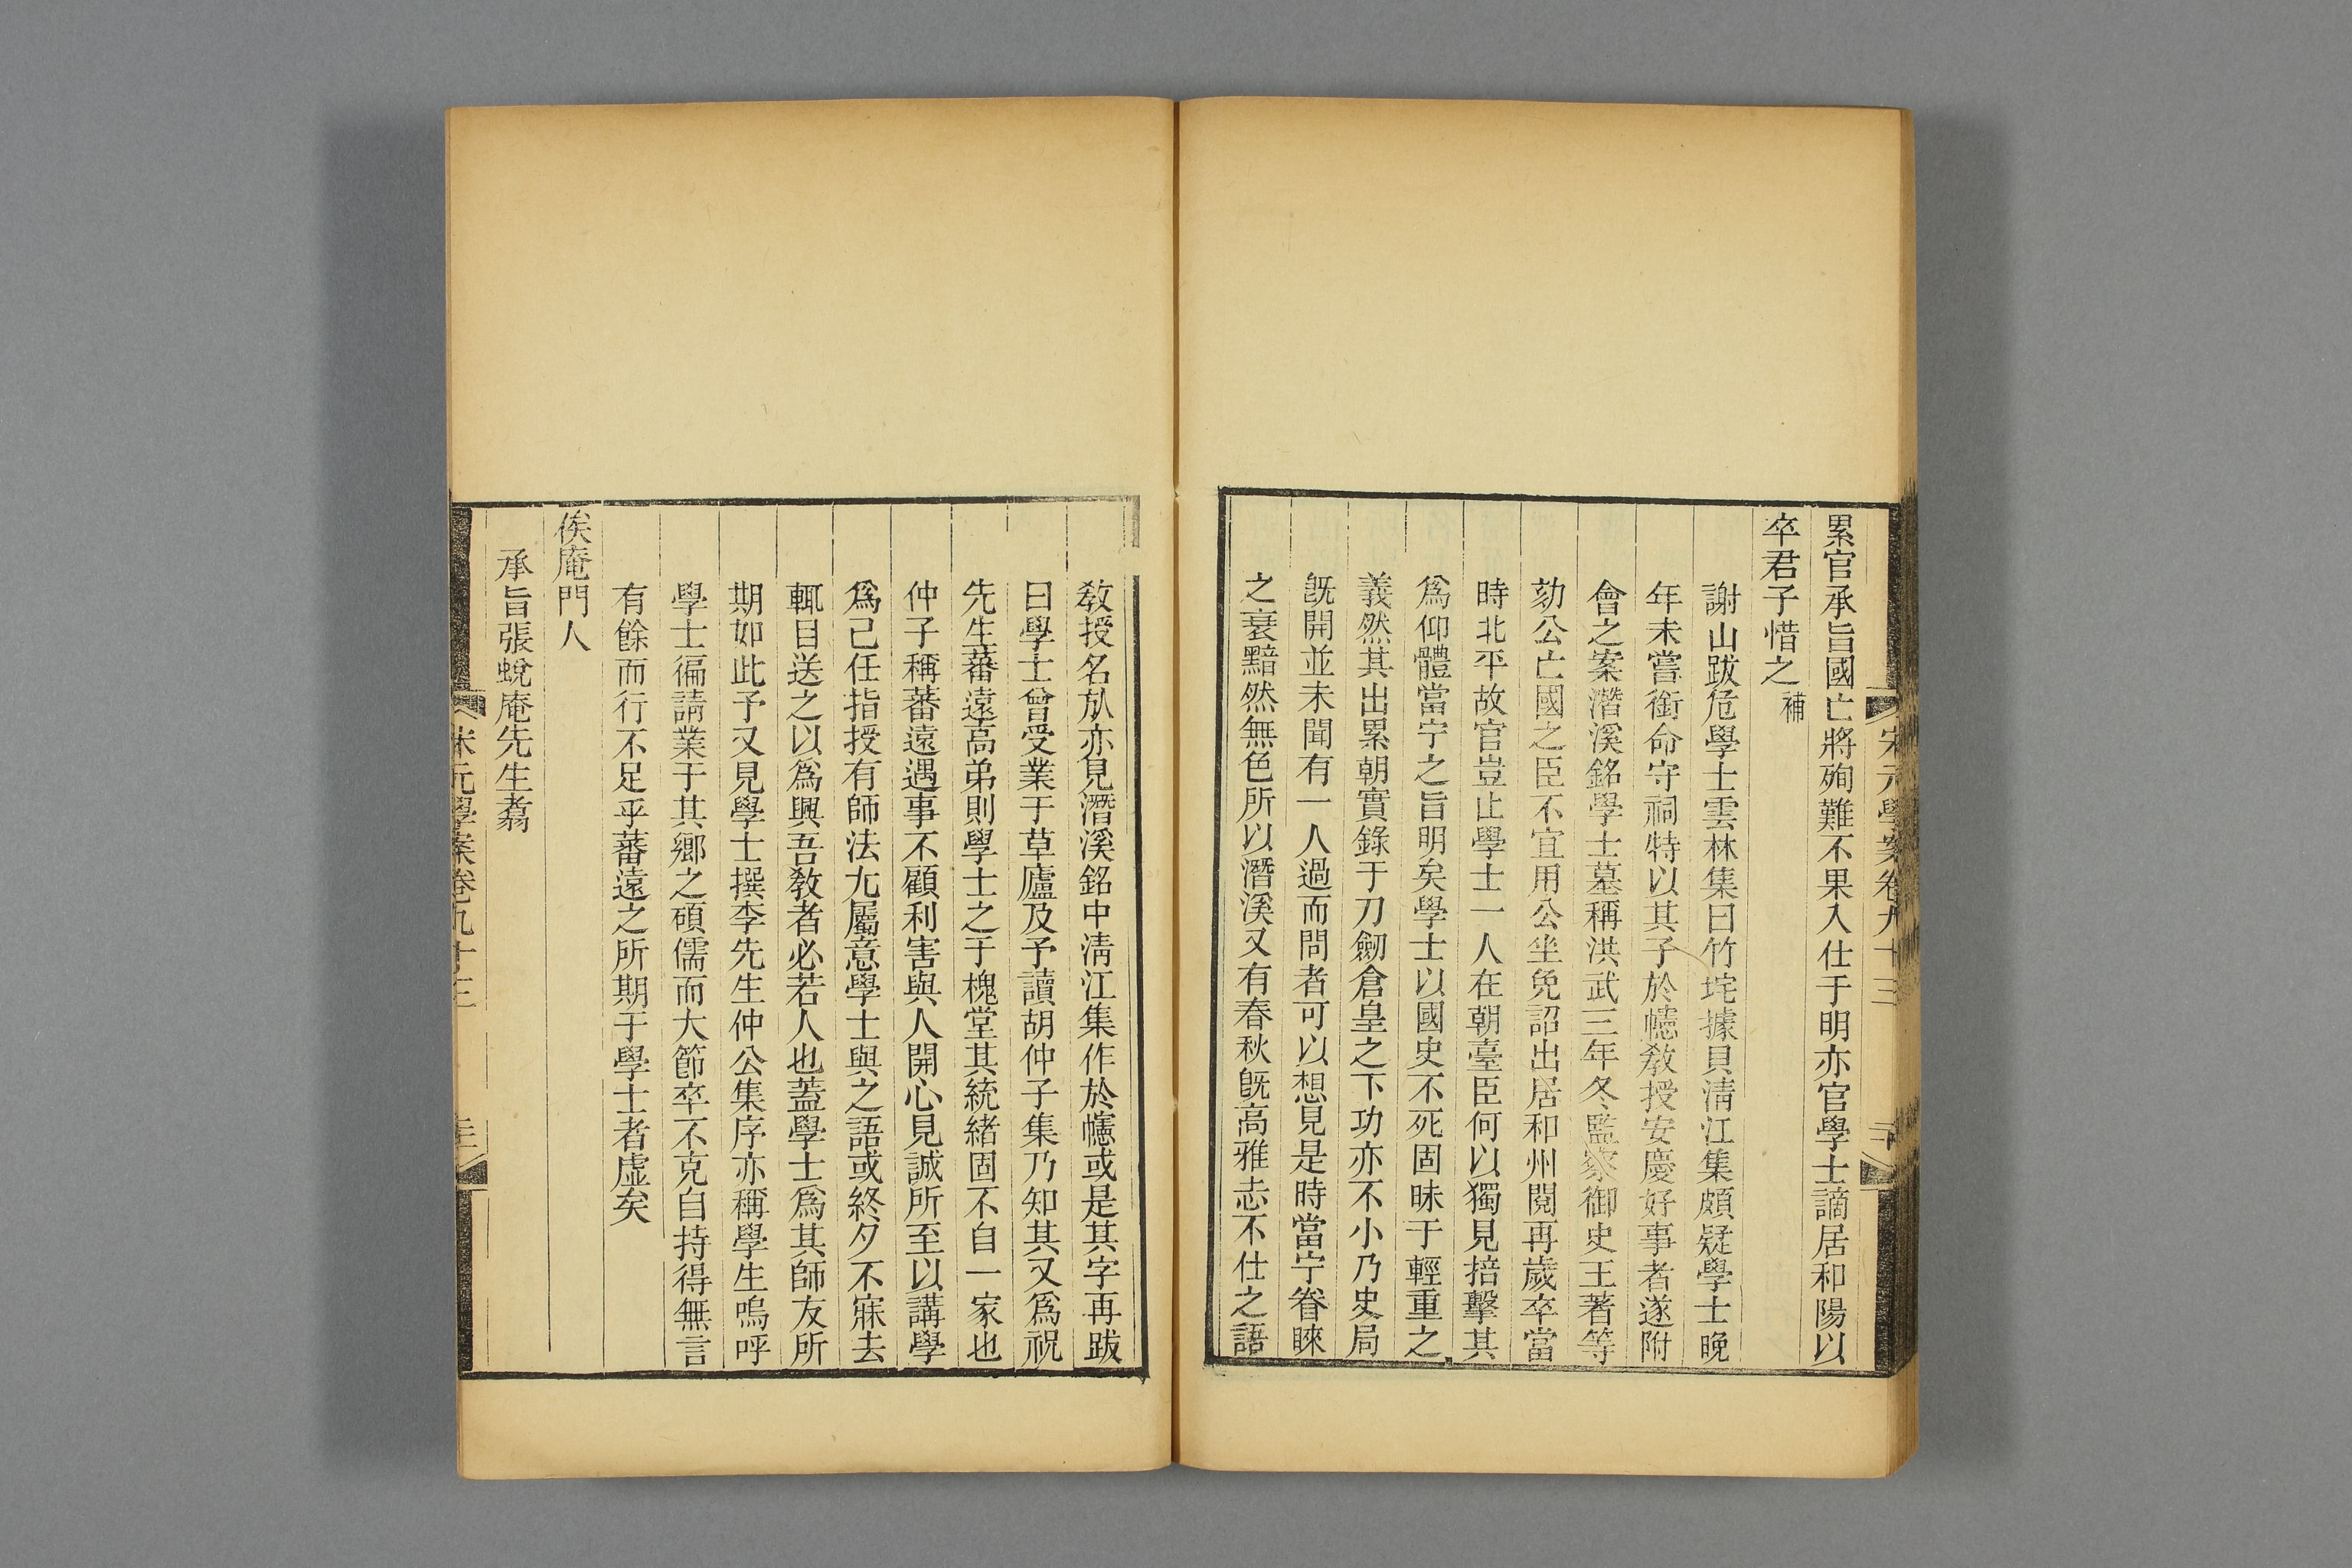 宋元學案卷九十三
累官承旨國亡將殉難不果入仕于明亦官學士謫居和陽以
卒君子惜之補
謝山跋危學士雲林集曰竹垞據貝淸江集頗疑學士晚
年未嘗銜命守祠特以其子於幰敎授安慶好事者遂附
會之案潛溪銘學士墓稱洪武三年冬監察御史王著等
劾公亡國之臣不宜用公坐免詔出居和州閱再歲卒當
時北平故官豈止學士一人在朝臺臣何以獨見掊擊其
爲仰體當宁之旨明矣學士以國史不死固昧于輕重之
義然其出累朝實錄于刀劒倉皇之下功亦不小乃史局
旣開並未聞有一人過而問者可以想見是時當宁眷睞
之衰黯然無色所以潛溪又有春秋旣高雅志不仕之語
敎授名㫃亦見潛溪銘中淸江集作於幰或是其字再跋
曰學士曾受業于草廬及予讀胡仲子集乃知其又爲祝
先生蕃遠高弟則學士之于槐堂其統緒固不自一家也
仲子稱蕃遠遇事不顧利害與人開心見誠所至以講學
爲己任指授有師法尢屬意學士與之語或終夕不寐去
輒目送之以爲興吾敎者必若人也蓋學士爲其師友所
期如此予又見學士撰李先生仲公集序亦稱學生嗚呼
學士徧請業于其鄉之碩儒而大節卒不克自持得無言
有餘而行不足乎蕃遠之所期于學士者虛矣
俟庵門人
承旨張蛻庵先生翥
宋元學案卷九十三